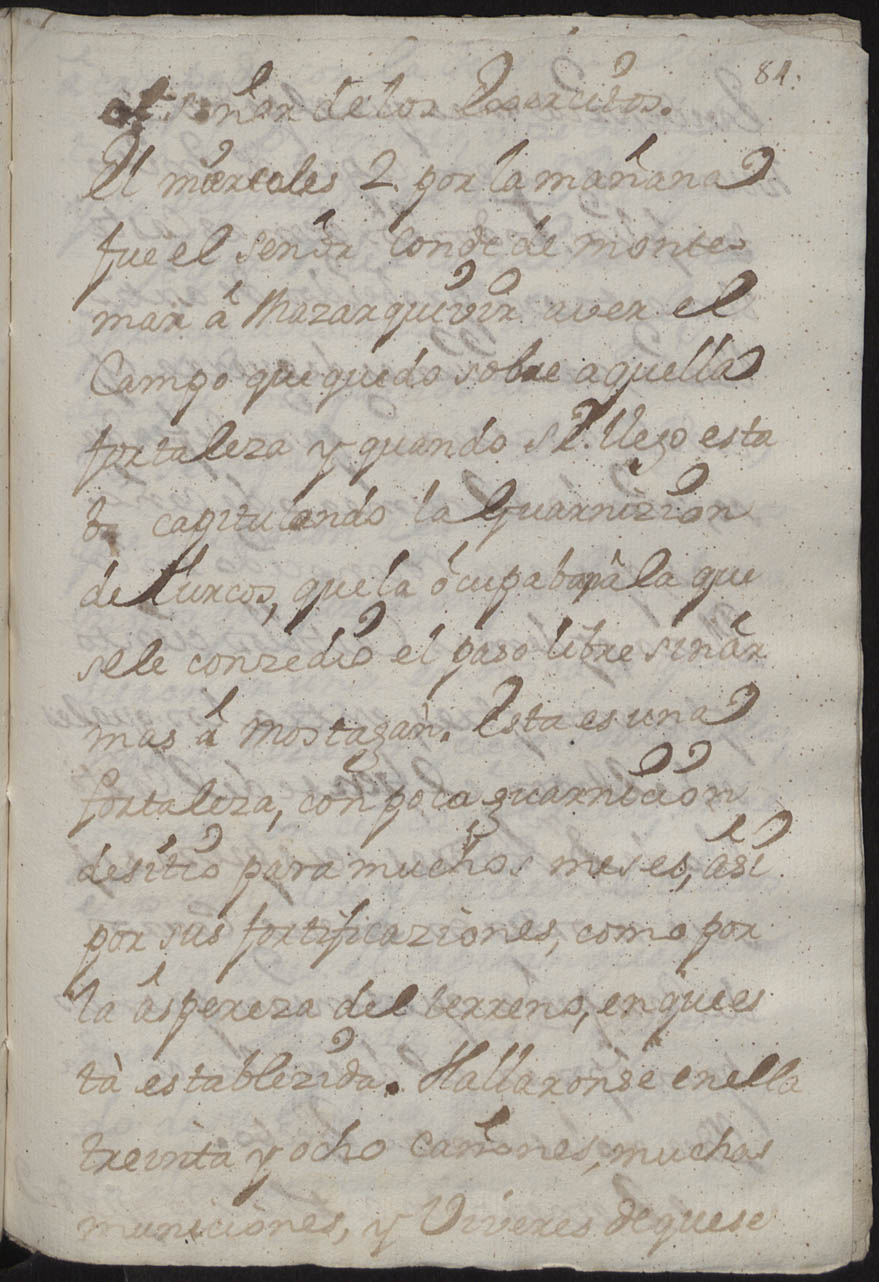 84.
señor de los Exercitos.
El miercoles 2 por la mañana
fue el señor Conde de monte-
mar â Mazarquivir aver el
Campo que quedo sobre aquella
fortaleza y quando S.E. llego esta
ba capitulando la Guarnizion
de Turcos, que la ôcupaba â la que
sele conzedio el paso libre sin âr
mas â mostagan. Esta es una
fortaleza, con poca guarnicion
desitio para muchos meses, âsi
por sus fortificaziones, como por
la âspereza del terreno, en que es
tà establezida. Hallaronse en ella
treinta y ocho cañones, muchas
municiones, y Viveres de que se